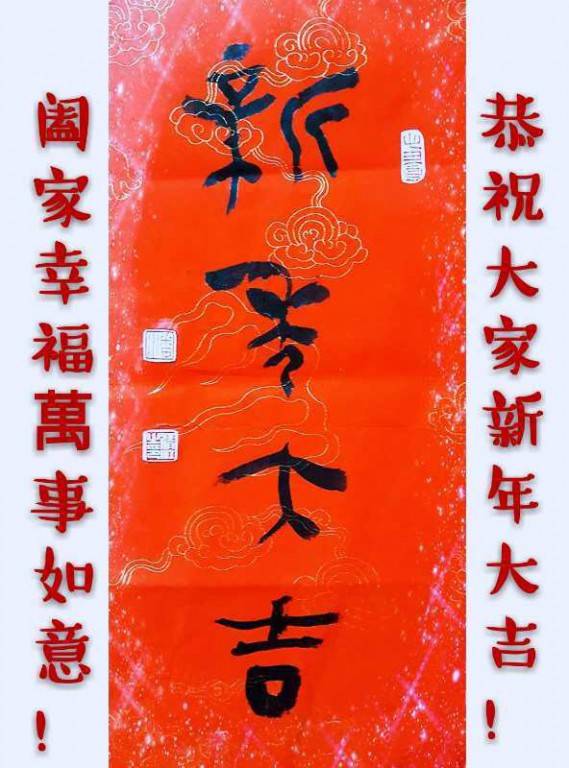 恭祝大家新年大吉！
新年大吉
闔家幸福萬事如意！